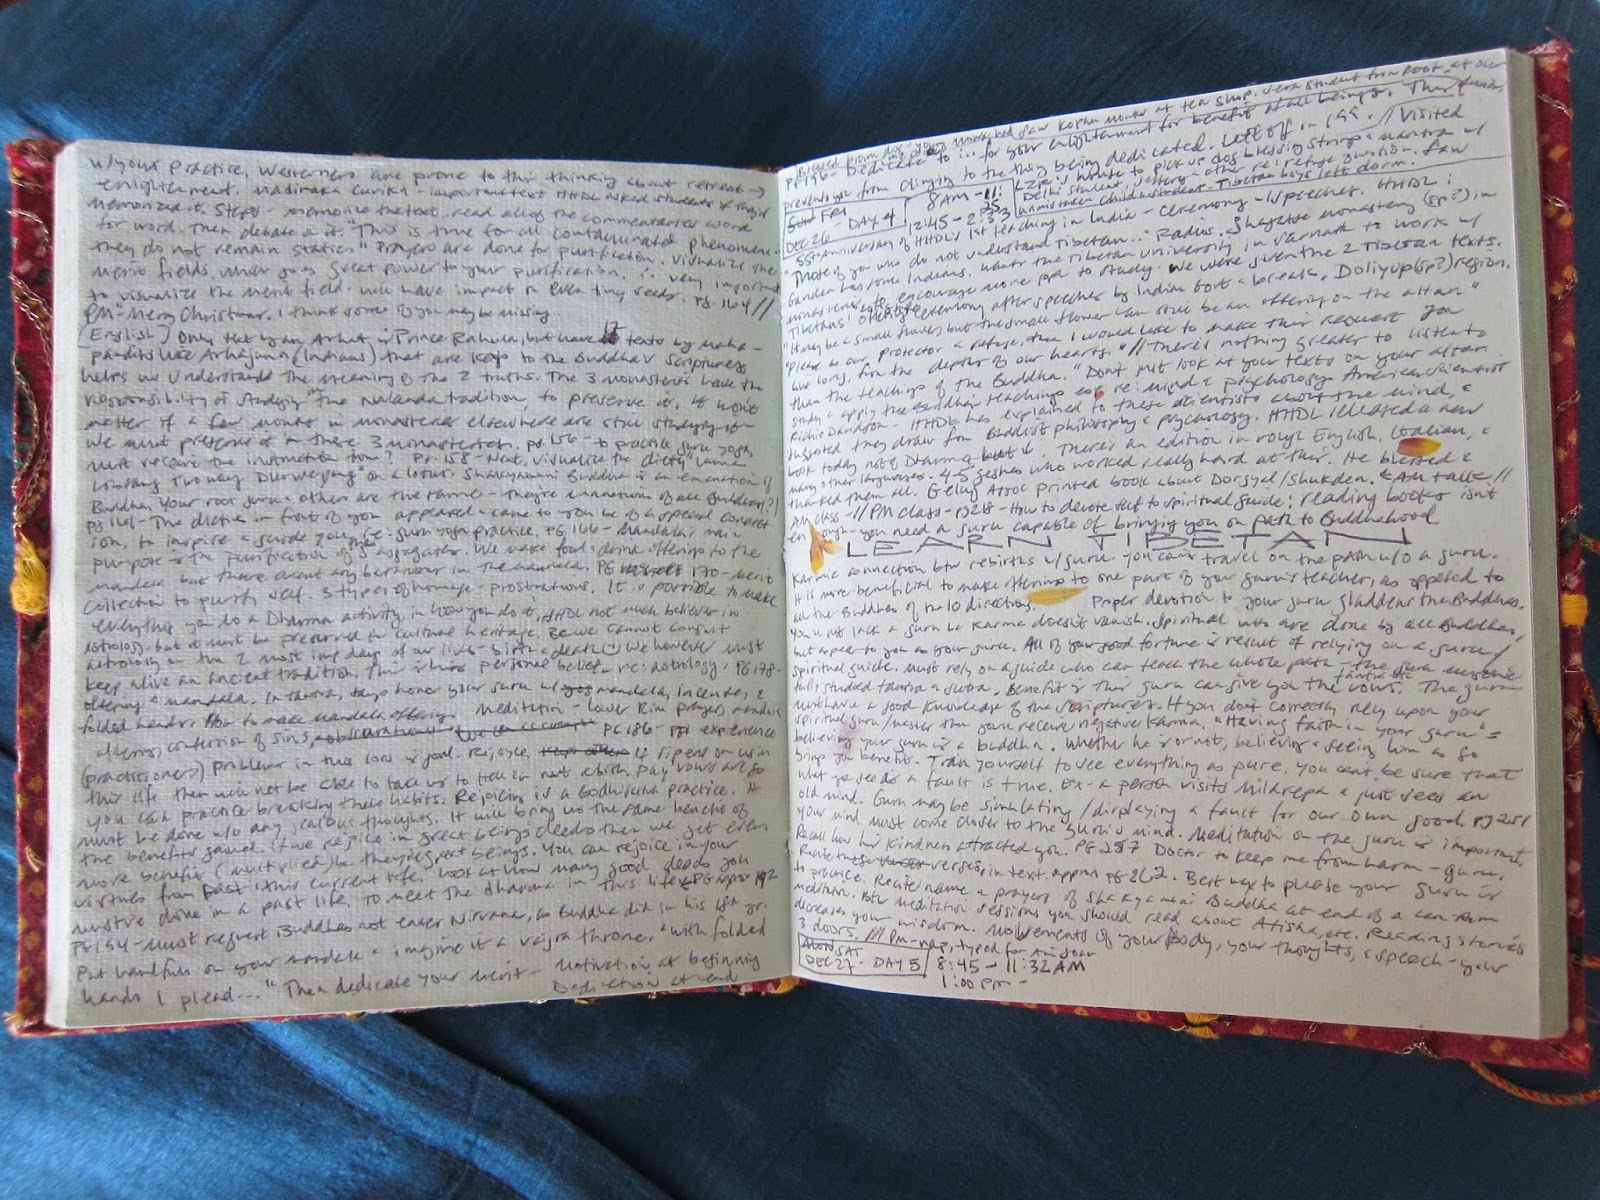 w/your practice. Westerners are prone to this thinking about retreat →
enlightenment. Madinaka Carika - important text HHDL asked students if they'd
memorized it. Steps - memorize the text, read all of the commentaries word
for word. Then debate it. "This is true for all contaminated phenomena -
they do not remain static." Prayers are done for purification. Visualize the
merit fields, which gives great power to your purification. ∴ very important
to visualize the merit field - will have impact on even tiny seeds. pg. 164 //
PM - "Merry Christmas. I think some of you may be missing
(English) Only the Arhat is Prince Rahula, but have 17 texts by Maha-
pandits like Arhajuna (Indians) that are keep to the Buddha's Scriptures
helps us understand the meaning of the 2 truths. The 3 monasteries have the
responsibility of studying the Nalanda tradition, to preserve it. It won't
matter if a few monks in monasteries elsewhere are still studying it
we must preserve it in these 3 monasteries. pg. 156 - to practice guru yoga
must receive the instruction from? Pg. 158 - Next, visualize the diety "Lama
Lobsang on a lotus. Shakyamuni Buddha is an emanation of
Buddha. Your root guru + other are the same - they're emanations of all Buddhas(?)
pg 161 - The dieties in front of you appeared + came to you bc of a special connect-
ion, to inspire + guide you - guru yoga practice. pg. 166 - Mandala's main
purpose is the purification of 5 aggregates. We make food + drink offerings to the
mandala but there aren't any beings in the mandala. PG 170 - merit
collection to purify self. 3 types of homage - prostrations. It is possible to make
everything you do a Dharma activity, in how you do it. HHDL not much believer in
astrology, but it must be preserved for cultural heritage. Bc we cannot consult
astrology on the 2 most imp days of our lives - birth + death! We however must
keep alive an ancient tradition. This is his personal belief re: astrology. PG 178 -
offering a mandala. In tantra, says honor your guru w/ mandala, incense, &
folded hands. How to make mandala offering Meditation - Lower Rim prayers, mandala
offering, confession of sins, PG 186 - experience
(practitioners) problems in this loss is good. Rejoice, ripens on us in
this life then will not be able to take us to hell in next rebirth. Day vows are so
you can practice breaking these habits. Rejoicing is a bodhicitta practice. It
must be done w/o any jealous thoughts. It will bring us the same benefits of
the benefits gained. If we rejoice in great beings deeds then we get even
more benefit (multiplied) bc they're great beings. You can rejoice in your
virtues from past + this current life. Look at how many good deeds you
mustve done in a past life, to meet the dharma in this life. PG 192
PG 194 - Must request Buddhas not enter Nirvana, as Buddha did in his 81st yr.
Put handfuls on your mandala + imagine it a vajra throne. "With folded
hands I plead..." Then dedicate your merit - Motivation at beginning
Dedication at end
brown dog - young monk, bod saw Kopan monks at tea shop. Vera student from Root at our
PG 196 - Dedicate to ... for your enlightenment for benefit of all beings. This
prevents you from clinging to the thing being dedicated. Left off on 199. // Visited
LZR's house to pick up dog blessing strings + mantra w/
Delhi student, Jeffery + other re: refuge question. Saw
Amnistaden child + student. Tibetan boys left dorm.
Fri 8 AM - 11:25
DEC 26 - DAY 4 12:45 - 2:33
"55th Anniversary of HHDL's 1st teaching in India - ceremony w/speeches. HHDL:
"Those of you who do not understand Tibetan..." Radios. Shagetse monastery (sp?) in
Ganden has some Indians. Wants the Tibetan University in Sarnath to work w/
monasteries to encourage more ppl to study. We were given the 2 Tibetan texts.
Tibetans' offering ceremony after speeches by Indian Govt + break. Doliyup (sp?) region.
"It may be a small flower, but the small flower can still be an offering on the altar."
"Please as our Protector + refuge, then I would like to make this request you
live long, from the depths of our hearts." // "There's nothing greater to listen to
than the teachings of the Buddha." "Don't just look at your texts on your altar.
Study + apply the Buddha's teachings re: mind + psychology. American scientist
Richie Davidson - HHDL has explained to these scientists about the mind, &
suggested they draw from Buddist philosophy + psychology. HHDL released a new
book today not of Dharma, but ↓. There's an edition in rough English, Italian, &
many other languages. 4-5 geshes who worked really hard at this. He blessed &
thanked them all. Gelug Assoc printed book about Dorsyel/Shukden. ↖ AM talk //
AM class - // PM class - pg 218 - How to devote self to spiritual guide: reading books isnt
enough - you need a guru capable of bringing you on path to Buddhahood.
LEARN TIBETAN
Karmic connection btw rebirths w/guru. You can't travel on the path w/o a guru.
It is more beneficial to make offerings to one part of your guru's teachers, as opposed to
all the Buddhas of the 10 directions. Proper devotion to your guru gladdens the Buddhas.
You'll not lack a guru bc karma doesn't vanish. Spiritual are done by all Buddhas,
but appear to you as your guru. All of your good fortune is result of relying on a guru/
spiritual guide. Must rely on a guide who can teach the whole path - the guru
fully studied tantra + sutra. Benefit is their guru can give you the tantric vows. The guru
must have a good knowledge of the scriptures. If you don't correctly rely upon your
spiritual guru/master then you receive negative karma. "Having faith in your guru" =
believing your guru is a buddha. Whether he is or not, believing + seeing him as so
brings you benefit. Train yourself to see everything as pure. You can't be sure that
what you see as a fault is true. Ex - a person visits Milarepa + just sees an
old mind. Guru may be simulating / displaying a fault for our own good. pg 251
your mind must come closer to the guru's mind. Meditation on the guru is important,
Recall how his kindness attracted you. PG 257 Doctor to keep me from harm - guru.
Recite these verses in text. approx pg 262. Best way to please your guru is
to practice. Recite name + prayers of Shakyamuni Buddha at end of a
meditation. Btw meditation sessions you should read about Atisha, etc. Reading stories
decreases your wisdom. Movements of your body, your thoughts, + speech - your
3 doors. /// PM - nap, typed for
SAT 8:45 - 11:32 AM
DEC 27 - DAY 5 1:00 pm -